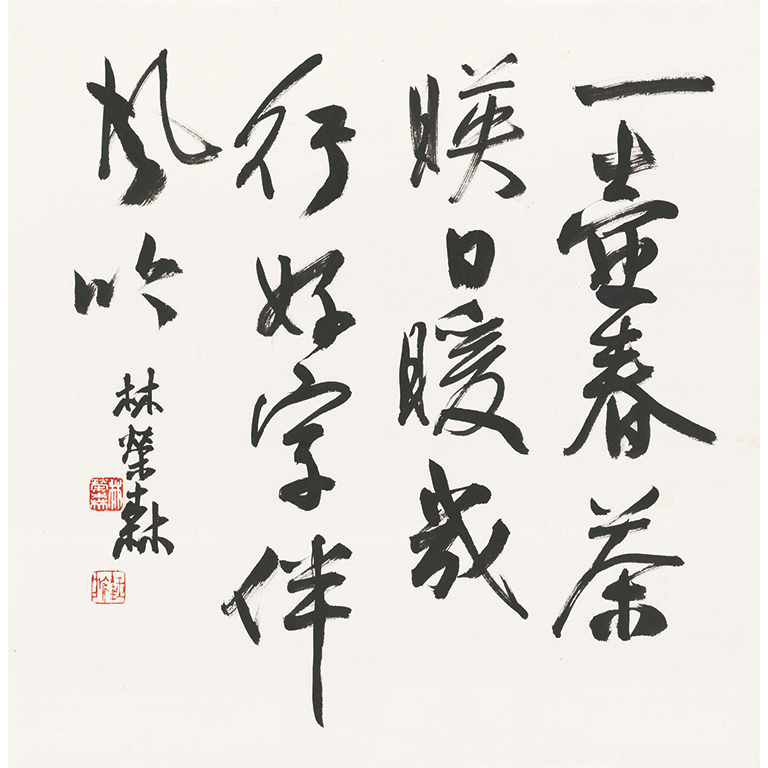 一壺春茶
暎日暖幾
行好字伴
風吟
林榮森